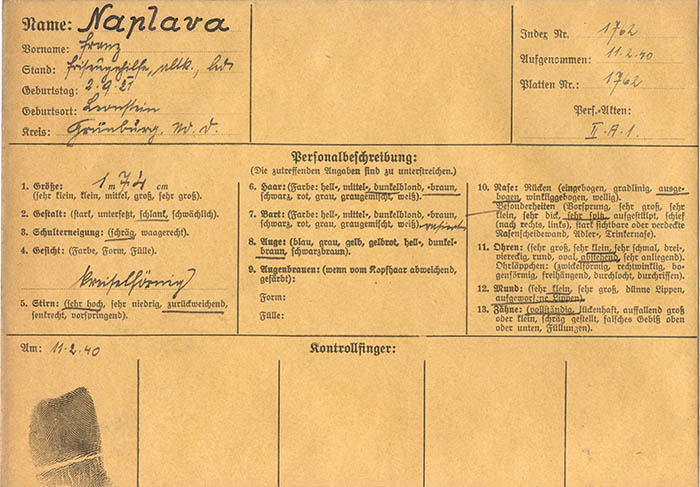 Name: Naplava
Vorname: Franz
Stand: Friseurgehilfe,
Geburtstag: 2.9.21
Geburtsort: Leonstein
Kreis: Grünburg,
Index Nr. 1762
Aufgenommen: 11.2.40
Platten Nr.: 1762
Pers.-Akten:
II.A.1.
Personalbeschreibung:
(Die zutreffenden Angaben sind zu unterstreichen.)
1. Größe: 1 m 74 cm
(sehr klein, klein, mittel, groß, sehr groß).
2. Gestalt: (stark, untersetzt, schlank, schwächlich).
3. Schulterneigung: (schräg, waagerecht).
4. Gesicht: (Farbe, Form, Fülle).
kreiselförmig
5. Stirn: (sehr hoch, sehr niedrig, zurückweichend,
senkrecht, vorspringend).
6. Haar: (Farbe: hell-, mittel-, dunkelblond, -braun,
schwarz, rot, grau, graugemischt, weiß).
7. Bart: (Farbe: hell-, mittel-, dunkelblond, -braun,
schwarz, rot, grau, graugemischt, weiß). rasiert
8. Auge: (blau, grau, gelb, gelbrot, hell-, dunkel-
braun, schwarzbraun).
9. Augenbrauen: (wenn vom Kopfhaar abweichend,
gefärbt):
Form:
Fülle:
10. Nase: Rücken (eingebogen, gradlinig, ausge-
bogen, winkliggebogen, wellig).
Besonderheiten (Vorsprung, sehr groß, sehr
klein, sehr dick, sehr spitz, aufgestülpt, schief
(nach rechts, links), stark sichtbare oder verdeckte
Nasenscheidewand, Adler-, Trinkernase).
11. Ohren: (sehr groß, sehr klein, sehr schmal, drei-,
viereckig, rund, oval, abstehend, sehr anliegend).
Ohrläppchen: (zwickelförmig, rechtwinklig, bo-
genförmig, freihängend, durchlocht, durchrissen).
12. Mund: (sehr klein, sehr groß, dünne Lippen,
aufgeworfene Lippen).
13. Zähne: (vollständig, lückenhaft, auffallend groß
oder klein, schräg gestellt, falsches Gebiß oben
oder unten, Füllungen).
Am: 11.2.40
Kontrollfinger: